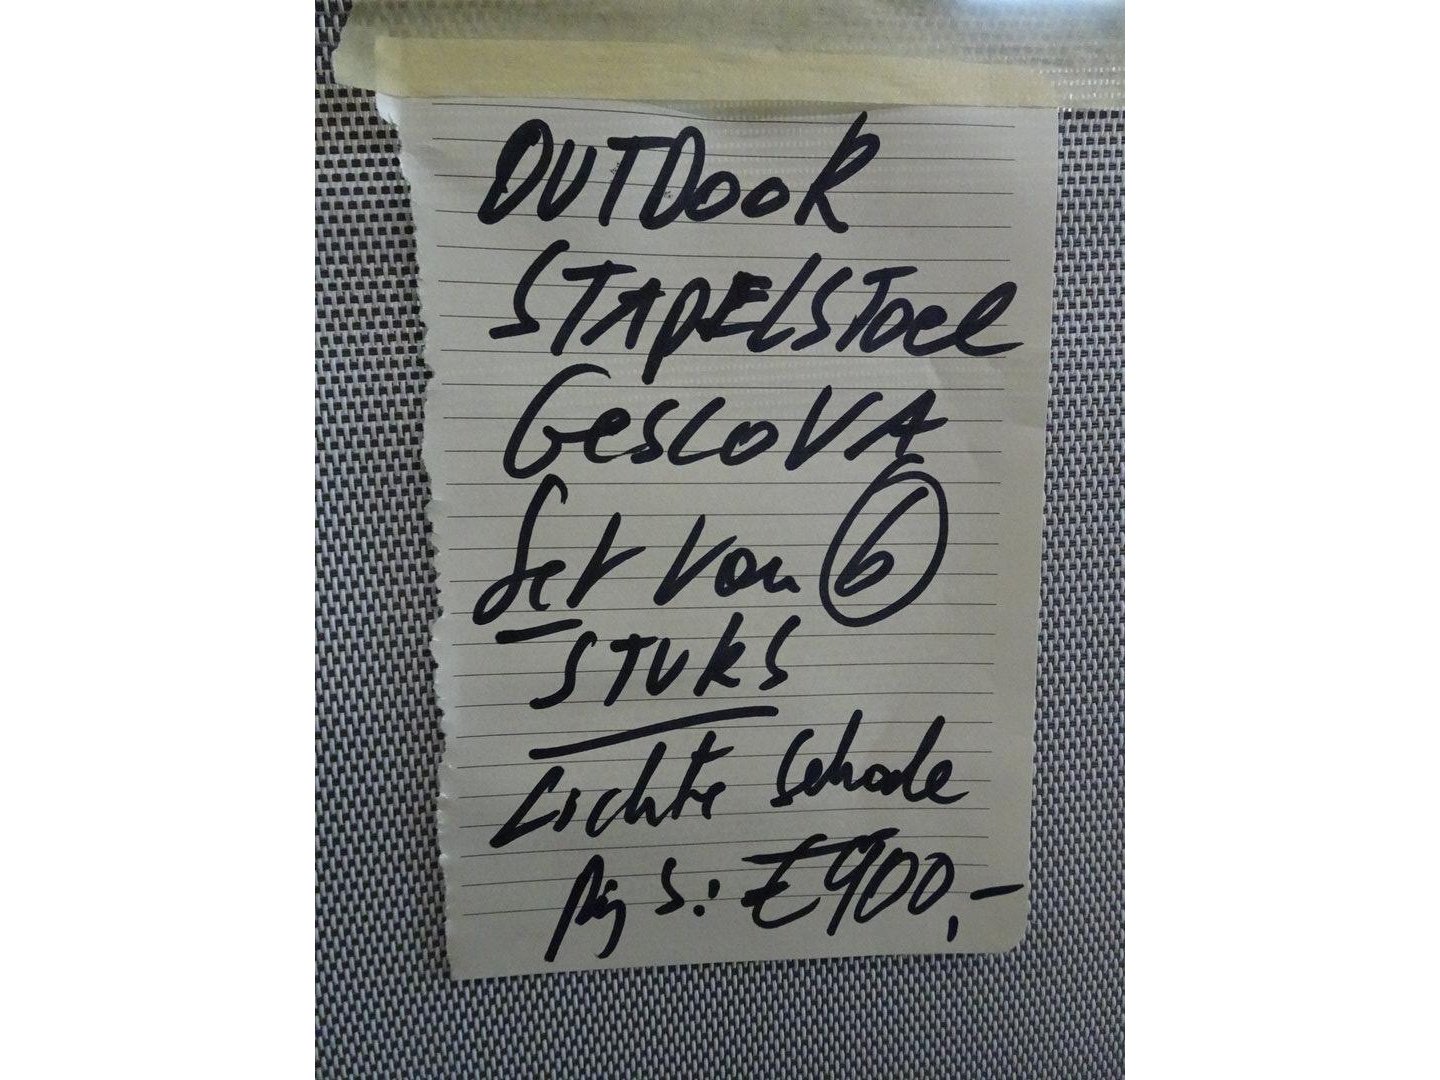 OUTDOOR
STAPELSTOEL
GESCOVA
Set van 6
STUKS
Lichte schade
prijs: €900,-